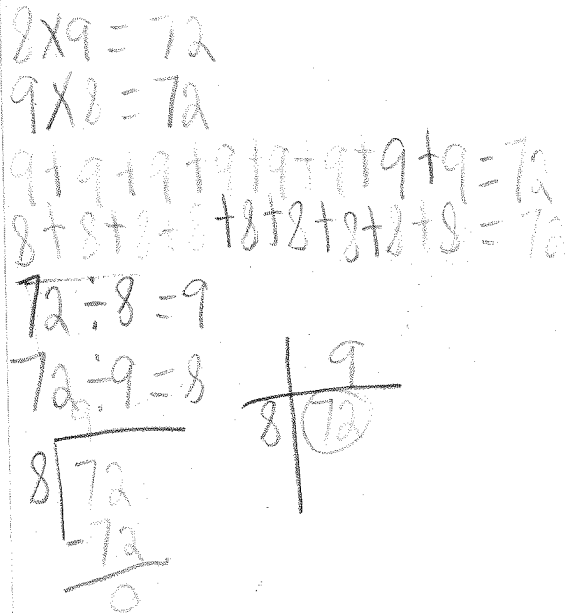 8×9=72
9×8=72
9+9+9+9+9+9+9+9=72
8+8+8+8+8+8+8+8+8=72
72÷8=9
72÷9=8
9
8 72
-72
0
9
8 72